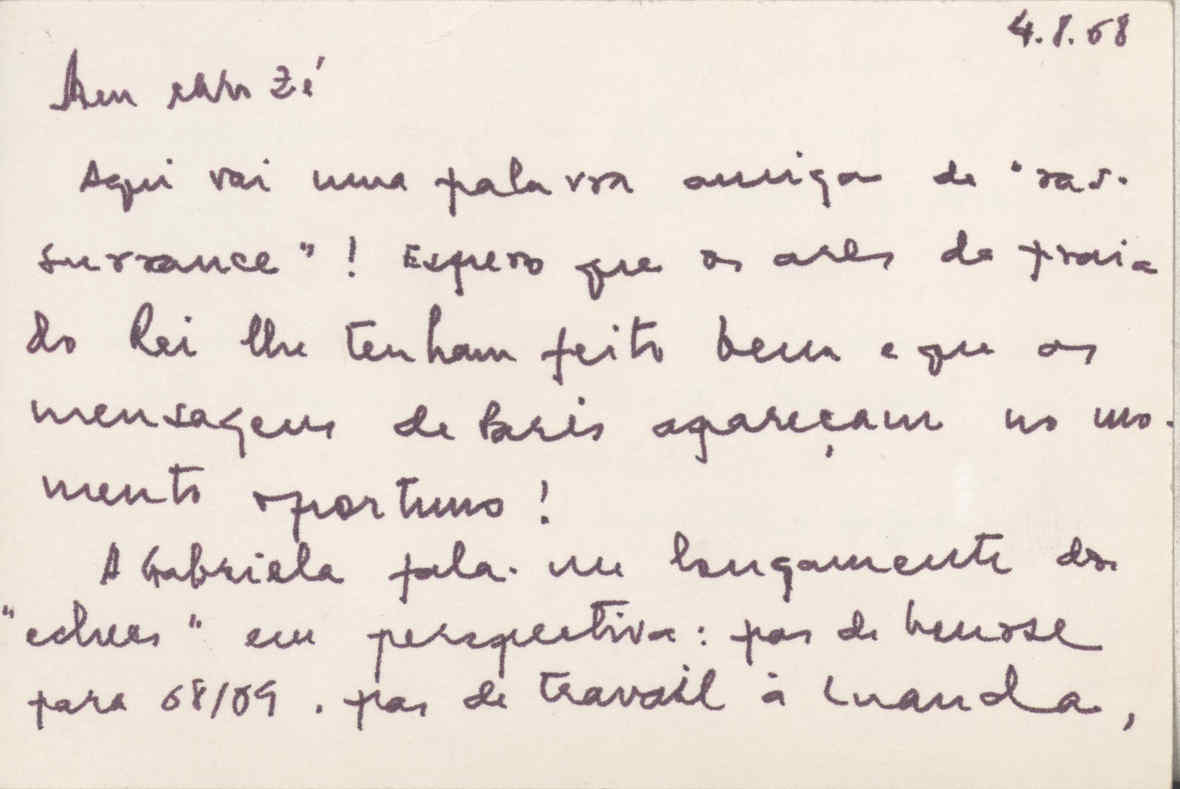 4.8.68
Meu caro Zé
Aqui vai uma palavra amiga de "ras-
surrance"! Espero que os ares da praia
do Rei lhe tenham feito bem e que as
mensagens de Paris apareçam no mo-
mento oportuno!
A Gabriela fala-me longamente dos
"echecs" em perspectiva: pas de bourse
para 68/69, pas de travail à Luanda,